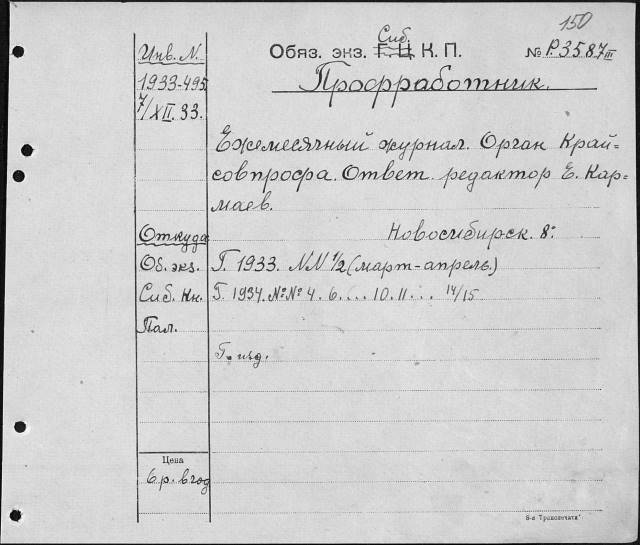 150
Сиб.
Обяз. экз. Г. Ц. К. П.
№ P.3587 III
Профработник.
Инв. N.
1933-495
7/XII. 33.
Ежемесячный журнал. Орган Край-
совпрофа. Ответ. редактор Е. Кар-
маев.
Новосибирск. 8°
Откуда
Об. экз.
Сиб. Кн.
Пал.
Г. 1933. NN 1/2 (март-апрель)
Г. 1934. №№ 4. 6. ... 10. 11 ... 14/15
Г. изд.
Цена
6 р. в год
8-я "Транспечати"